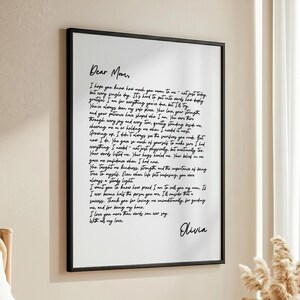 Dear Mom,
I hope you know how much you mean to me - not just today
but every single day. It's hard to put into words how
grateful I am for everything you've done, but I'll try.
You've always been my safe place. Your love, your strength,
and your patience have shaped who I am. You were there
through every joy and every tear, gently standing beside me,
cheering me on or holding me when I needed it most.
Growing up, I didn't always see the sacrifices you made. But
now I do. You gave so much of yourself to make sure I had
everything I needed - not just physically, but emotionally too.
Your words lifted me. Your hugs healed me. Your belief in me
gave me confidence when I had none.
You taught me kindness, strength and the importance of being
true to myself. Even when life felt confusing, you were
always a steady light.
I want you to know how proud I am to call you my mom. If
I ever become half the person you are, I'll consider that a
success. Thank you for loving me unconditionally, for guiding
me, and for being my home.
I love you more than words can ever say.
With all my love,
Olivia